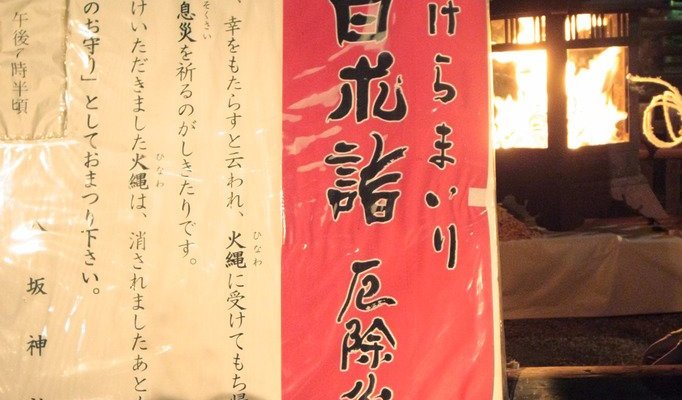 けらまいり
白朮詣 厄除
、幸をもたらすと云われ、火縄に受けてもち帰
息災を祈るのがしきたりです。
けいただきました火縄は、消されましたあと
のお守り」としておまつり下さい。
午後7時半頃
八坂神